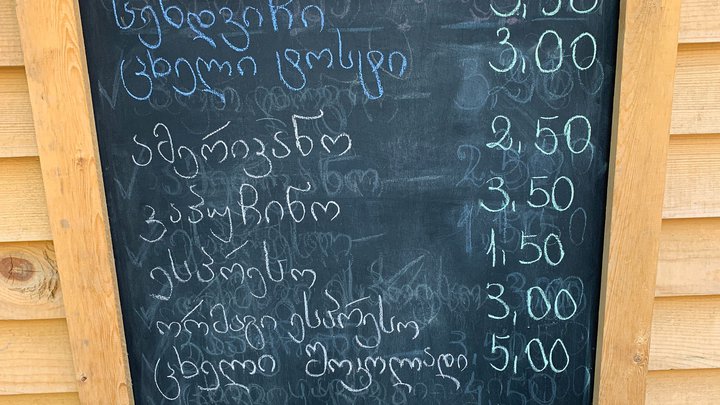 სენდვიჩი 3,50
ცხელი ტოსტი 3,00
ამერიკანო 2,50
კაპუჩინო 3,50
ესპრესო 1,50
ორმაგი ესპრესო 3,00
ცხელი შოკოლადი 5,00